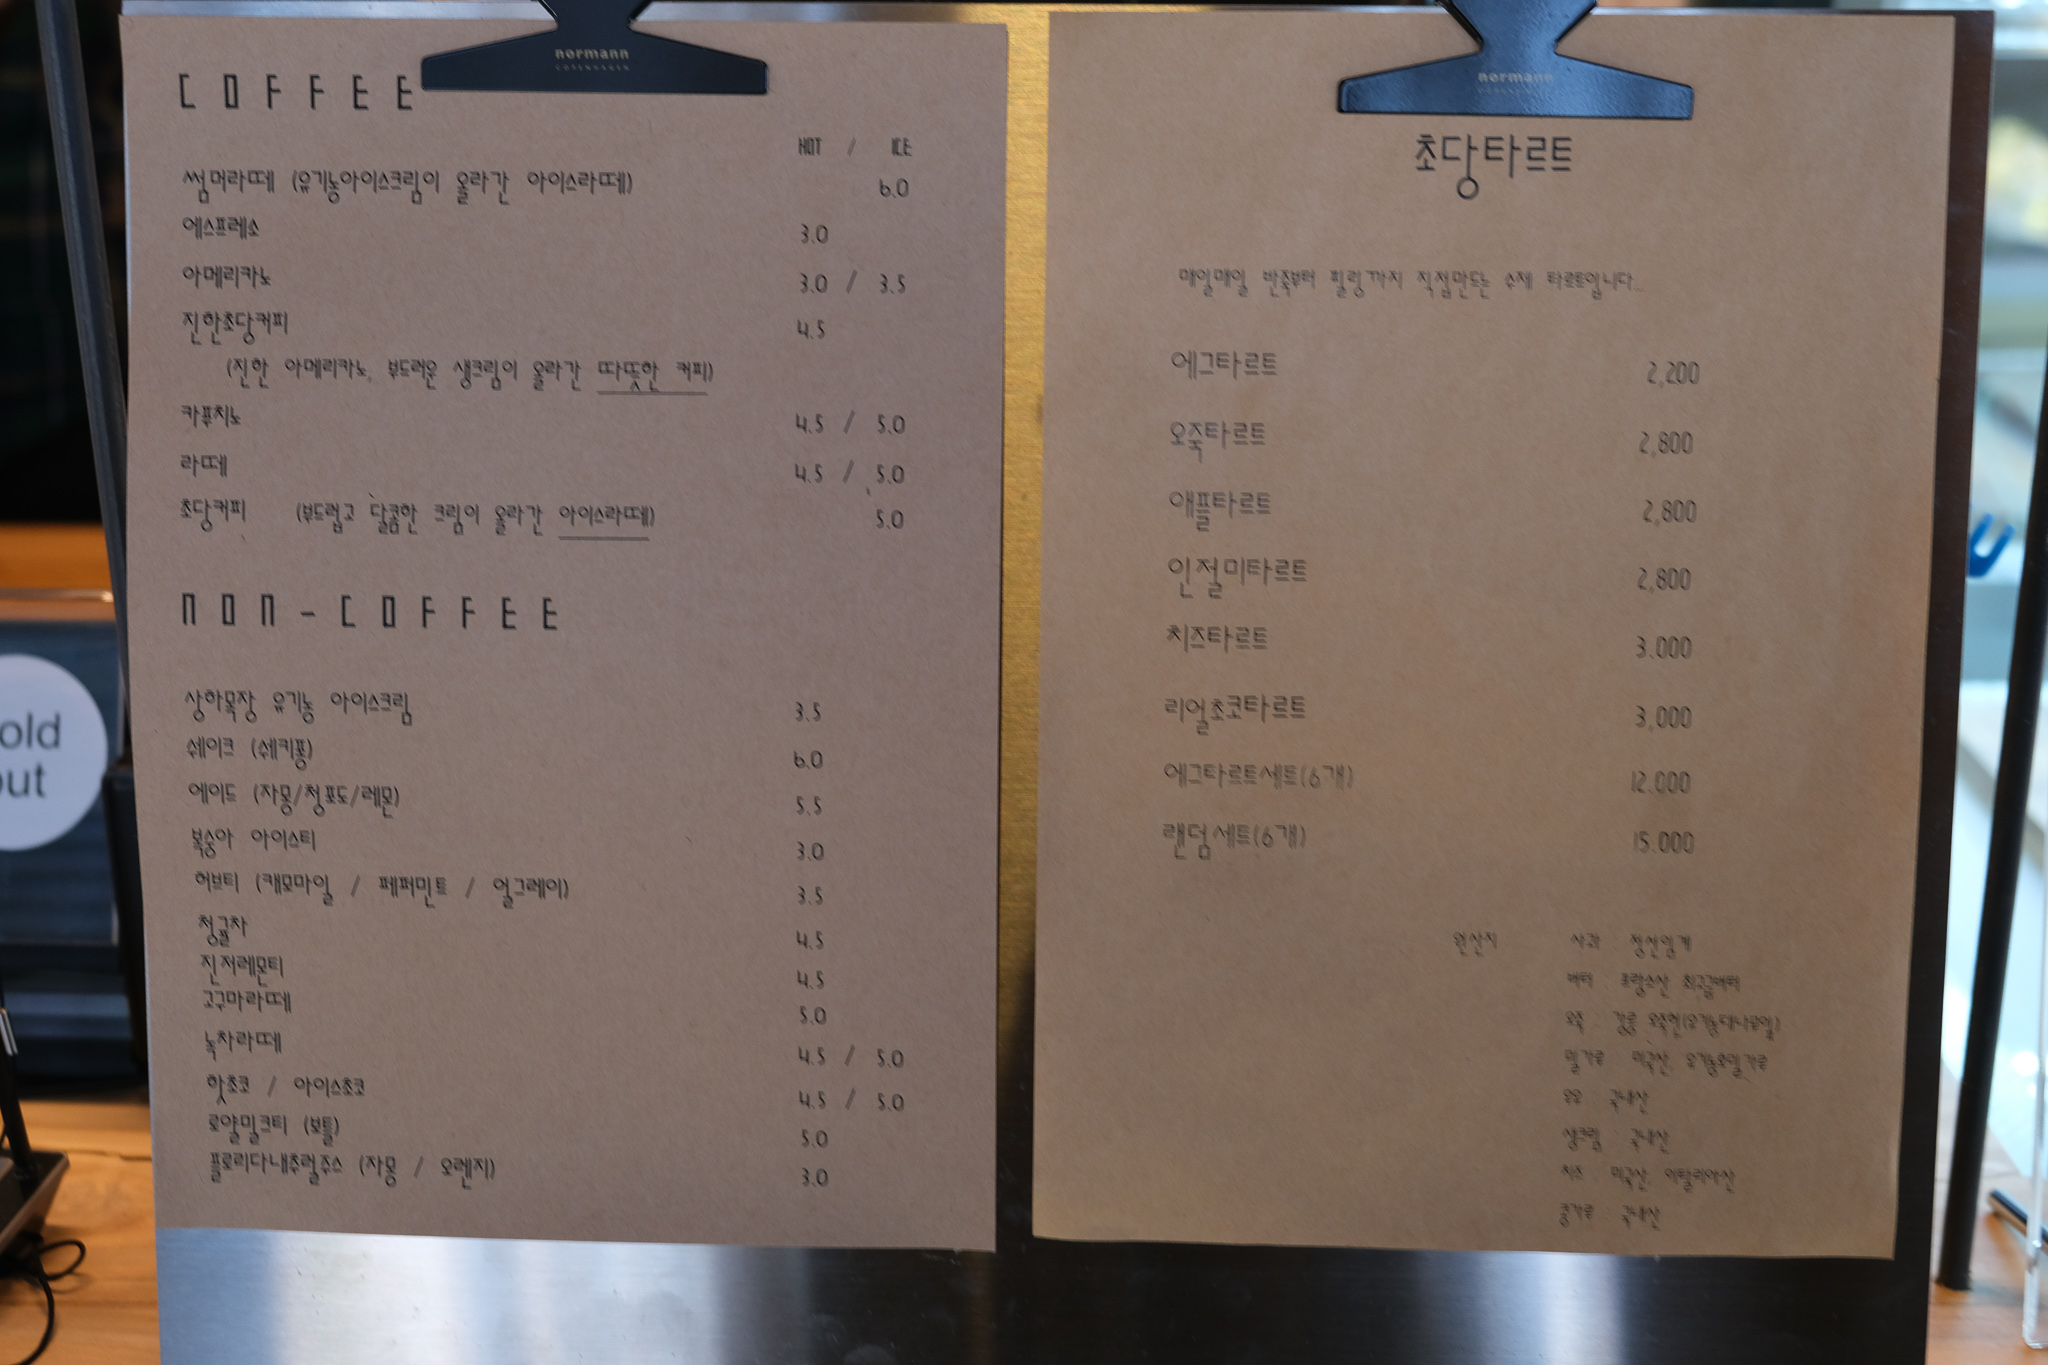 normann
COPENHAGEN
COFFEE
HOT / ICE
썸머라떼 (유기농아이스크림이 올라간 아이스라떼) 6.0
에스프레소 3.0
아메리카노 3.0 / 3.5
진한초당커피 4.5
(진한 아메리카노, 부드러운 생크림이 올라간 따뜻한 커피)
카푸치노 4.5 / 5.0
라떼 4.5 / 5.0
초당커피 (부드럽고 달콤한 크림이 올라간 아이스라떼) 5.0
NON-COFFEE
상하목장 유기농 아이스크림 3.5
쉐이크 (쉐키퐁) 6.0
에이드 (자몽/청포도/레몬) 5.5
복숭아 아이스티 3.0
허브티 (캐모마일 / 페퍼민트 / 얼그레이) 3.5
청귤차 4.5
진저레몬티 4.5
고구마라떼 5.0
녹차라떼 4.5 / 5.0
핫초코 / 아이스초코 4.5 / 5.0
로얄밀크티 (보틀) 5.0
플로리다내추럴주스 (자몽 / 오렌지) 3.0
normann
초당타르트
매일매일 반죽부터 필링까지 직접만드는 수제 타르트입니다...
에그타르트 2,200
오죽타르트 2,800
애플타르트 2,800
인절미타르트 2,800
치즈타르트 3.000
리얼초코타르트 3,000
에그타르트세트(6개) 12.000
랜덤세트(6개) 15.000
원산지 사과 정선임계
버터 프랑스산 최고급버터
오죽 : 강릉 오죽헌(유기농대나무잎)
밀가루 : 미국산, 유기농호밀가루
국내산
생크림 : 국내산
치즈 : 미국산, 이탈리아산
콩가루 : 국내산
old
out